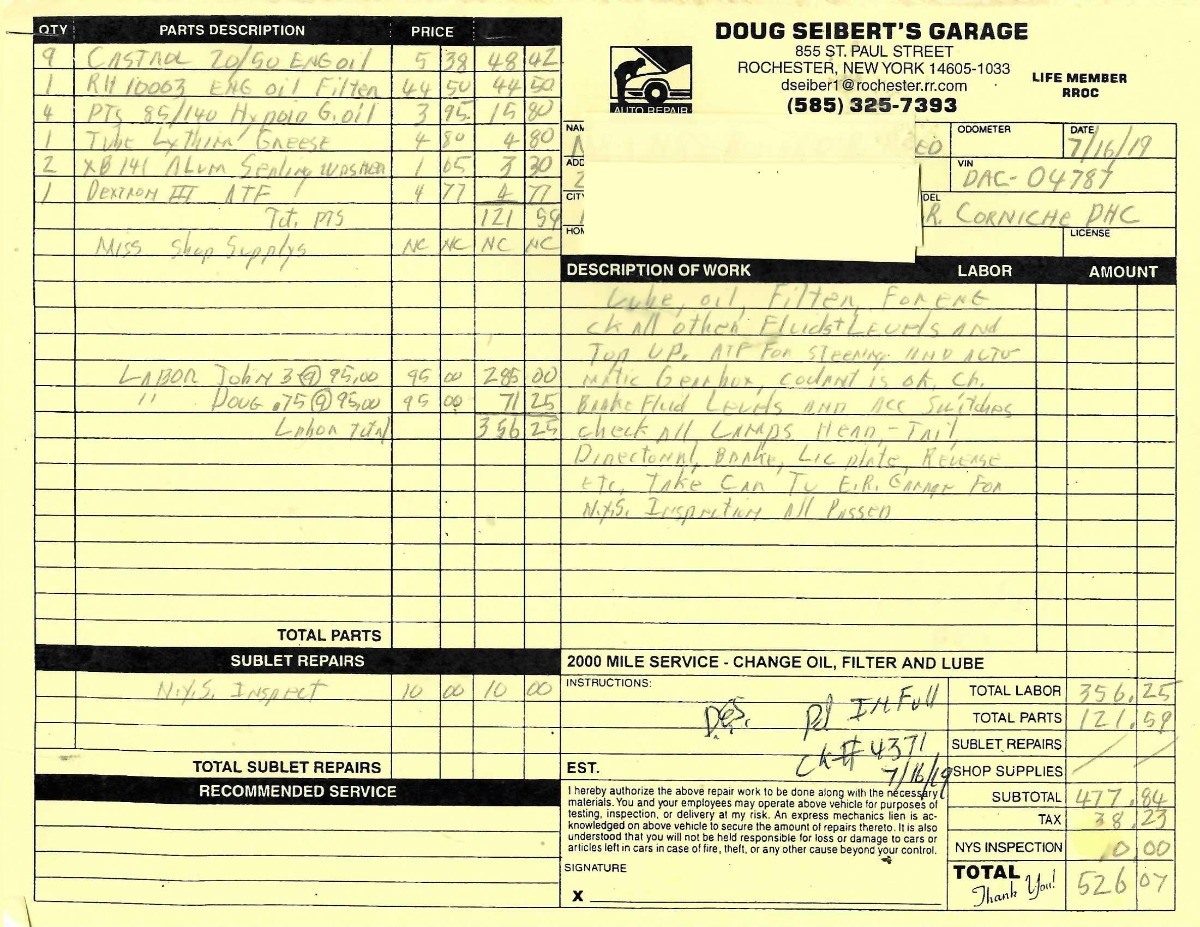 DOUG SEIBERT'S GARAGE
855 ST. PAUL STREET
ROCHESTER, NEW YORK 14605-1033
dseiber1@rochester.rr.com
(585) 325-7393
LIFE MEMBER
RROC
AUTO REPAIR
QTY PARTS DESCRIPTION PRICE
9 CASTROL 20/50 ENG oil 5 38 48 42
1 RH10003 ENG oil Filter 44 50 44 50
4 PTs 85/140 Hypoid G. oil 3 95 15 80
1 Tube Lythium Greese 4 80 4 80
2 XB141 Alum Sealing washer 1 65 3 30
1 Dextron III ATF 4 77 4 77
Tot. PTS 121 59
Miss Shop Supplys NC NC NC NC
LABOR John 3 @ 95.00 95 00 285 00
" Doug .75 @ 95.00 95 00 71 25
Labor Total 356 25
TOTAL PARTS
SUBLET REPAIRS
N.Y.S. Inspect 10 00 10 00
TOTAL SUBLET REPAIRS
RECOMMENDED SERVICE
NAM
ED
ODOMETER
DATE
7/16/19
ADD
VIN
DAC-04787
CITY
DEL
R. CORNICHE DHC
HOM
LICENSE
DESCRIPTION OF WORK LABOR AMOUNT
Lube, oil, Filter, For ENG
ck all other Fluids + Levels AND
Top UP. ATF For Steering AND Auto
matic Gearbox, coolant is ok, Ch.
Brake Fluid Levels AND Acc Switches
check All Lamps Head,-Tail,
Directional, Brake, Lic plate, Reverse
etc, Take Car To E.R. Garage For
N.Y.S. Inspection All Passed
2000 MILE SERVICE - CHANGE OIL, FILTER AND LUBE
INSTRUCTIONS:
D.e.S. Pd In Full
Ck# 4371
7/16/19
EST.
I hereby authorize the above repair work to be done along with the necessary
materials. You and your employees may operate above vehicle for purposes of
testing, inspection, or delivery at my risk. An express mechanics lien is ac-
knowledged on above vehicle to secure the amount of repairs thereto. It is also
understood that you will not be held responsible for loss or damage to cars or
articles left in cars in case of fire, theft, or any other cause beyond your control.
SIGNATURE
X
TOTAL LABOR 356.25
TOTAL PARTS 121.59
SUBLET REPAIRS
SHOP SUPPLIES
SUBTOTAL 477.84
TAX 38.23
NYS INSPECTION 10.00
TOTAL 526 07
Thank You!